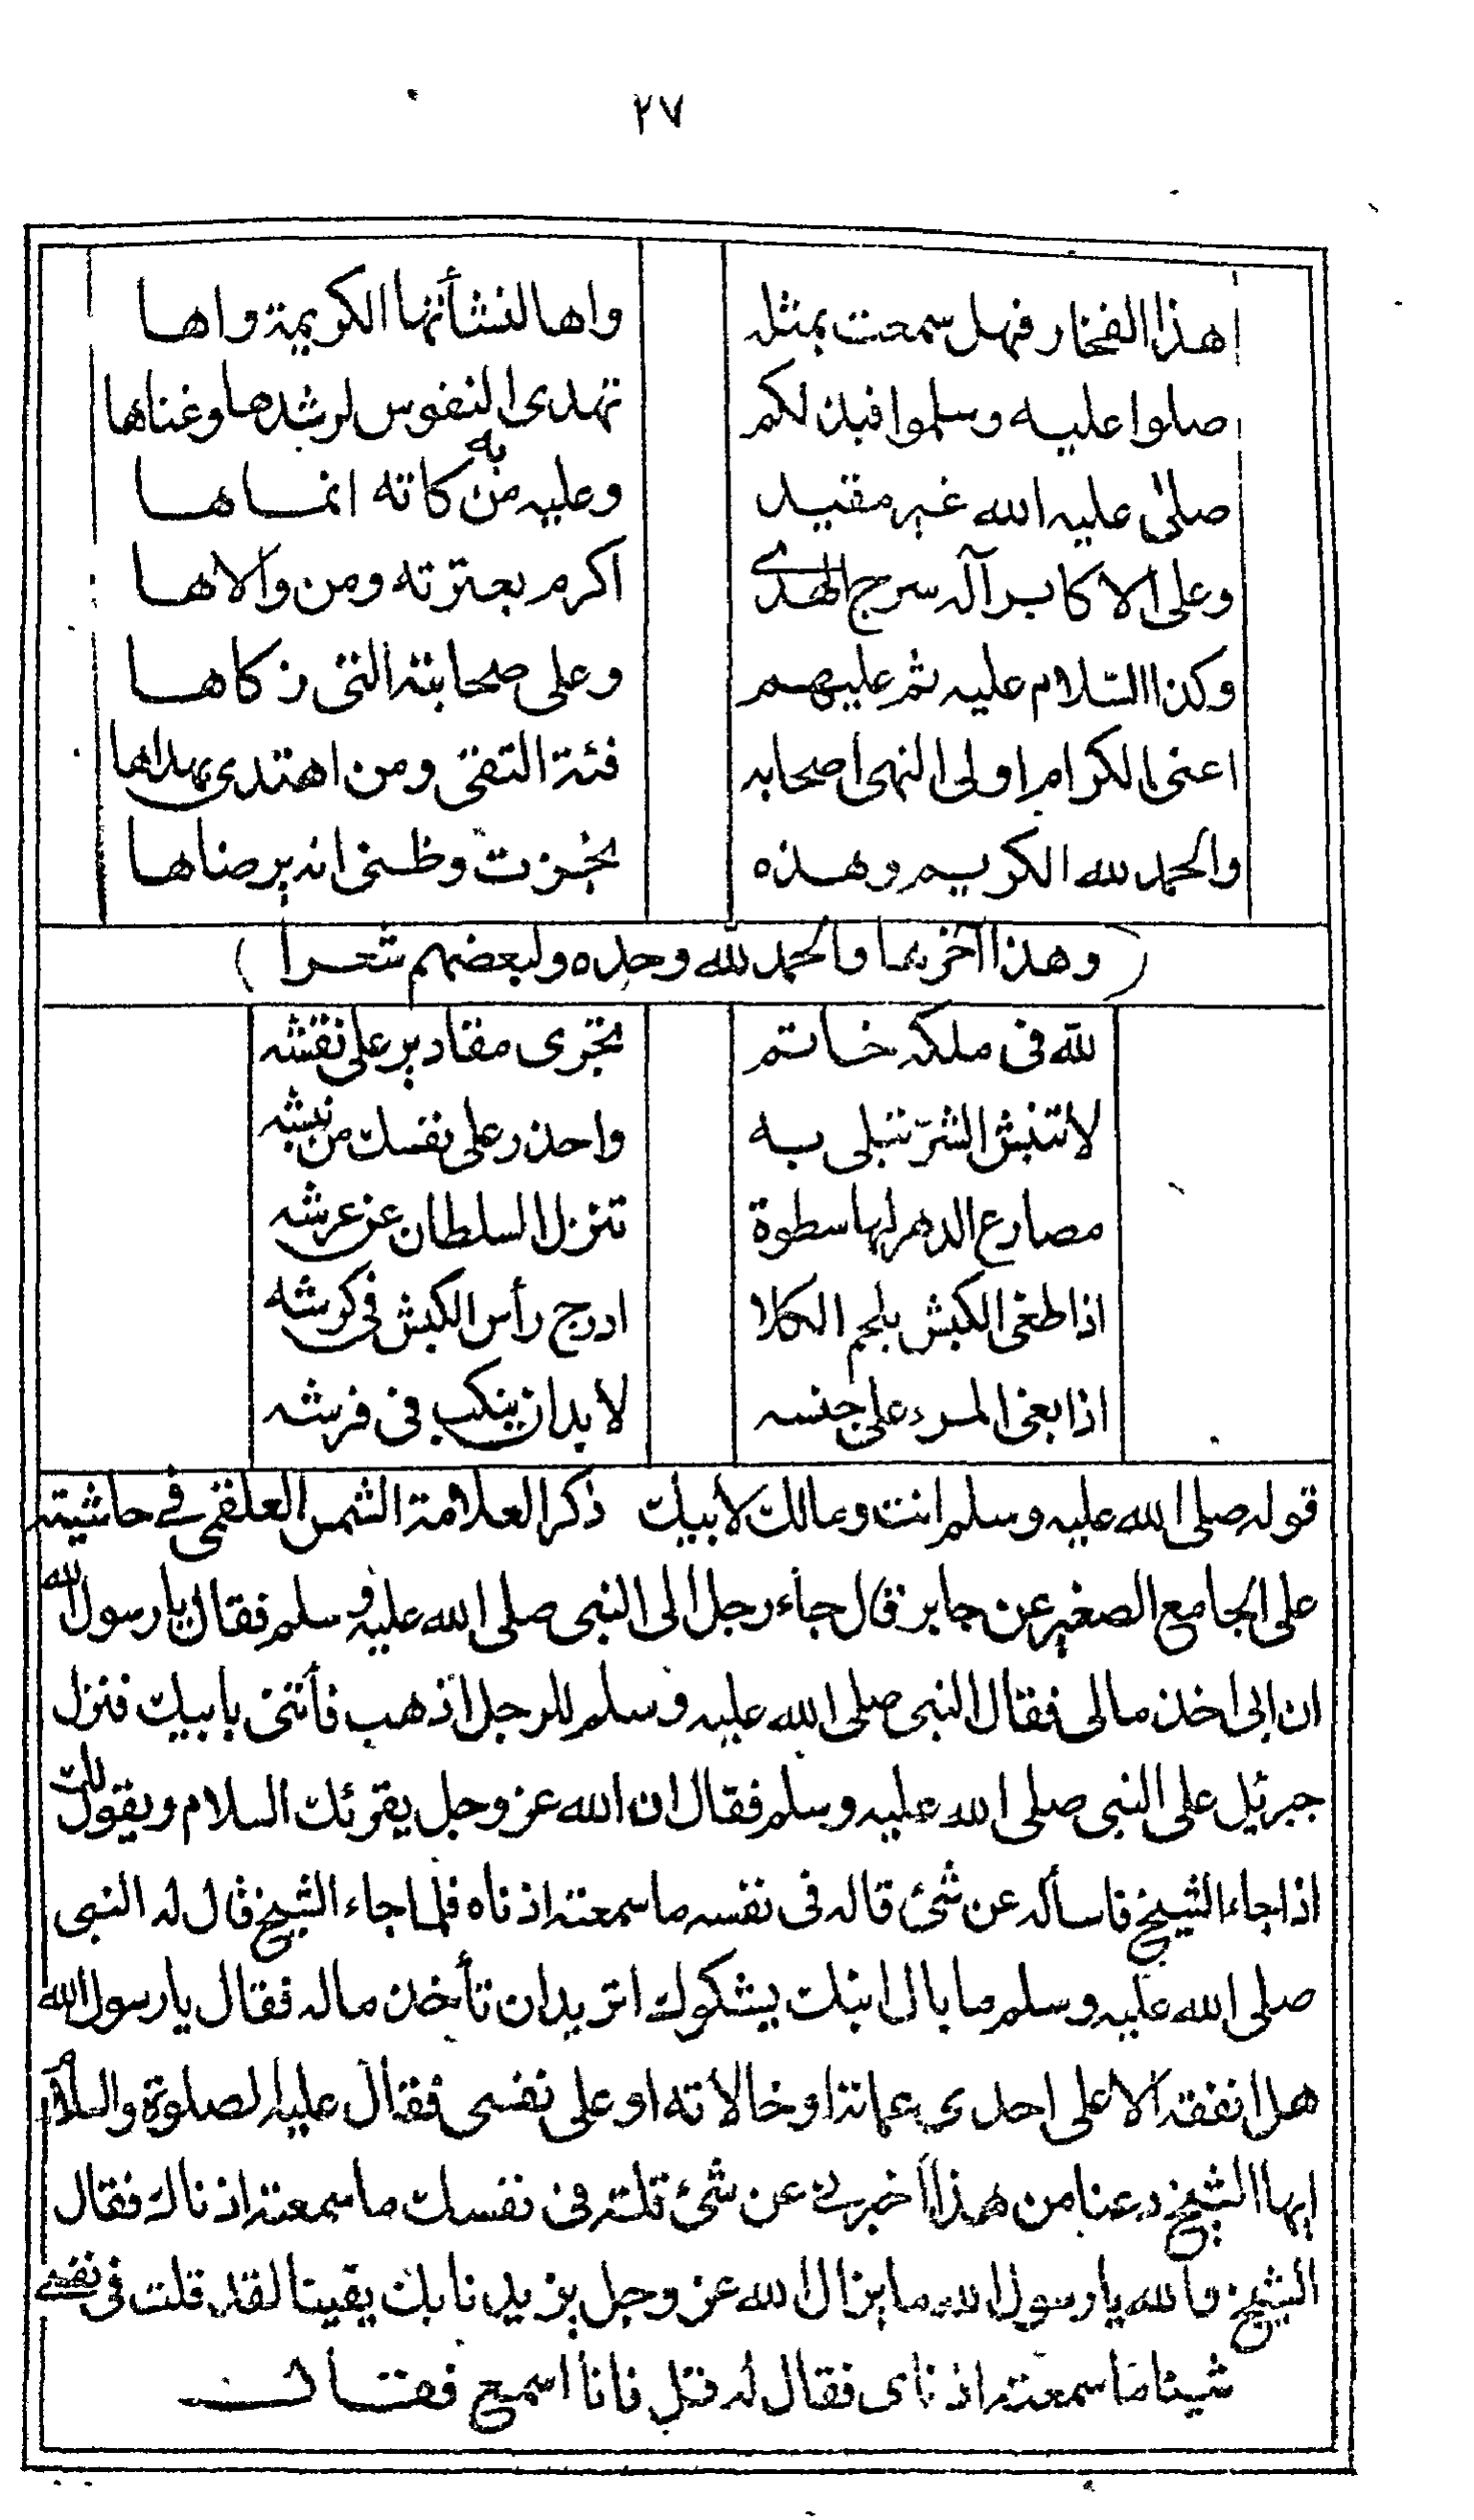 ٢٧
هذا الفخار فهل سمعت بمثله واها لنشأتها الكريمة واها
صلوا عليه وسلموا فبذلكم تهدى النفوس لرشدها وغناها
صلى عليه الله غير مقيد وعليه من بركاته انماها
وعلى الاكابر آله سرج الهدى اكرم بعترته ومن والاها
وكذا السلام عليه ثم عليهم وعلى صحابته التى زكاها
اعنى الكرام اولى النهى اصحابه فئة التقى ومن اهتدى بهداها
والحمد لله الكريم وهذه نجزت وظنى انه يرضاها
(وهذا آخرها والحمد لله وحده ولبعضهم شعرا)
لله فى ملكه خاتم تجرى مقادير على نقشه
لا تنبش الشر تبتلى به واحذر على نفسك من نبشه
مصارع الدهر لها سطوة تنزل السلطان عن عرشه
اذا طغى الكبش بلحم الكلا ادرج رأس الكبش فى كرشه
اذا بغى المرء على جنسه لا بد ان ينكب فى فرشه
قوله صلى الله عليه وسلم انت ومالك لابيك ذكر العلامة الشمس العلقمى فى حاشيته
على الجامع الصغير عن جابر قال جاء رجل الى النبى صلى الله عليه وسلم فقال يا رسول الله
ان ابى اخذ مالى فقال النبى صلى الله عليه وسلم للرجل اذهب فأتنى بابيك فنزل
جبرئيل على النبى صلى الله عليه وسلم فقال ان الله عز وجل يقرئك السلام ويقول لك
اذا جاء الشيخ فاسأله عن شئ قاله فى نفسه ما سمعته اذناه فلما جاء الشيخ قال له النبى
صلى الله عليه وسلم ما بال ابنك يشكوك اتريد ان تأخذ ماله فقال يا رسول الله
هل انفقه الا على احدى عماته او خالاته او على نفسى فقال عليه الصلوة والسلام
ايها الشيخ دعنا من هذا اخبرنى عن شئ قلته فى نفسك ما سمعته اذناك فقال
الشيخ والله يا رسول الله ما يزال الله عز وجل يزيدنا بك يقينا لقد قلت فى نفسى
شيئا ما سمعته اذناى فقال له قل فانا اسمع فقال